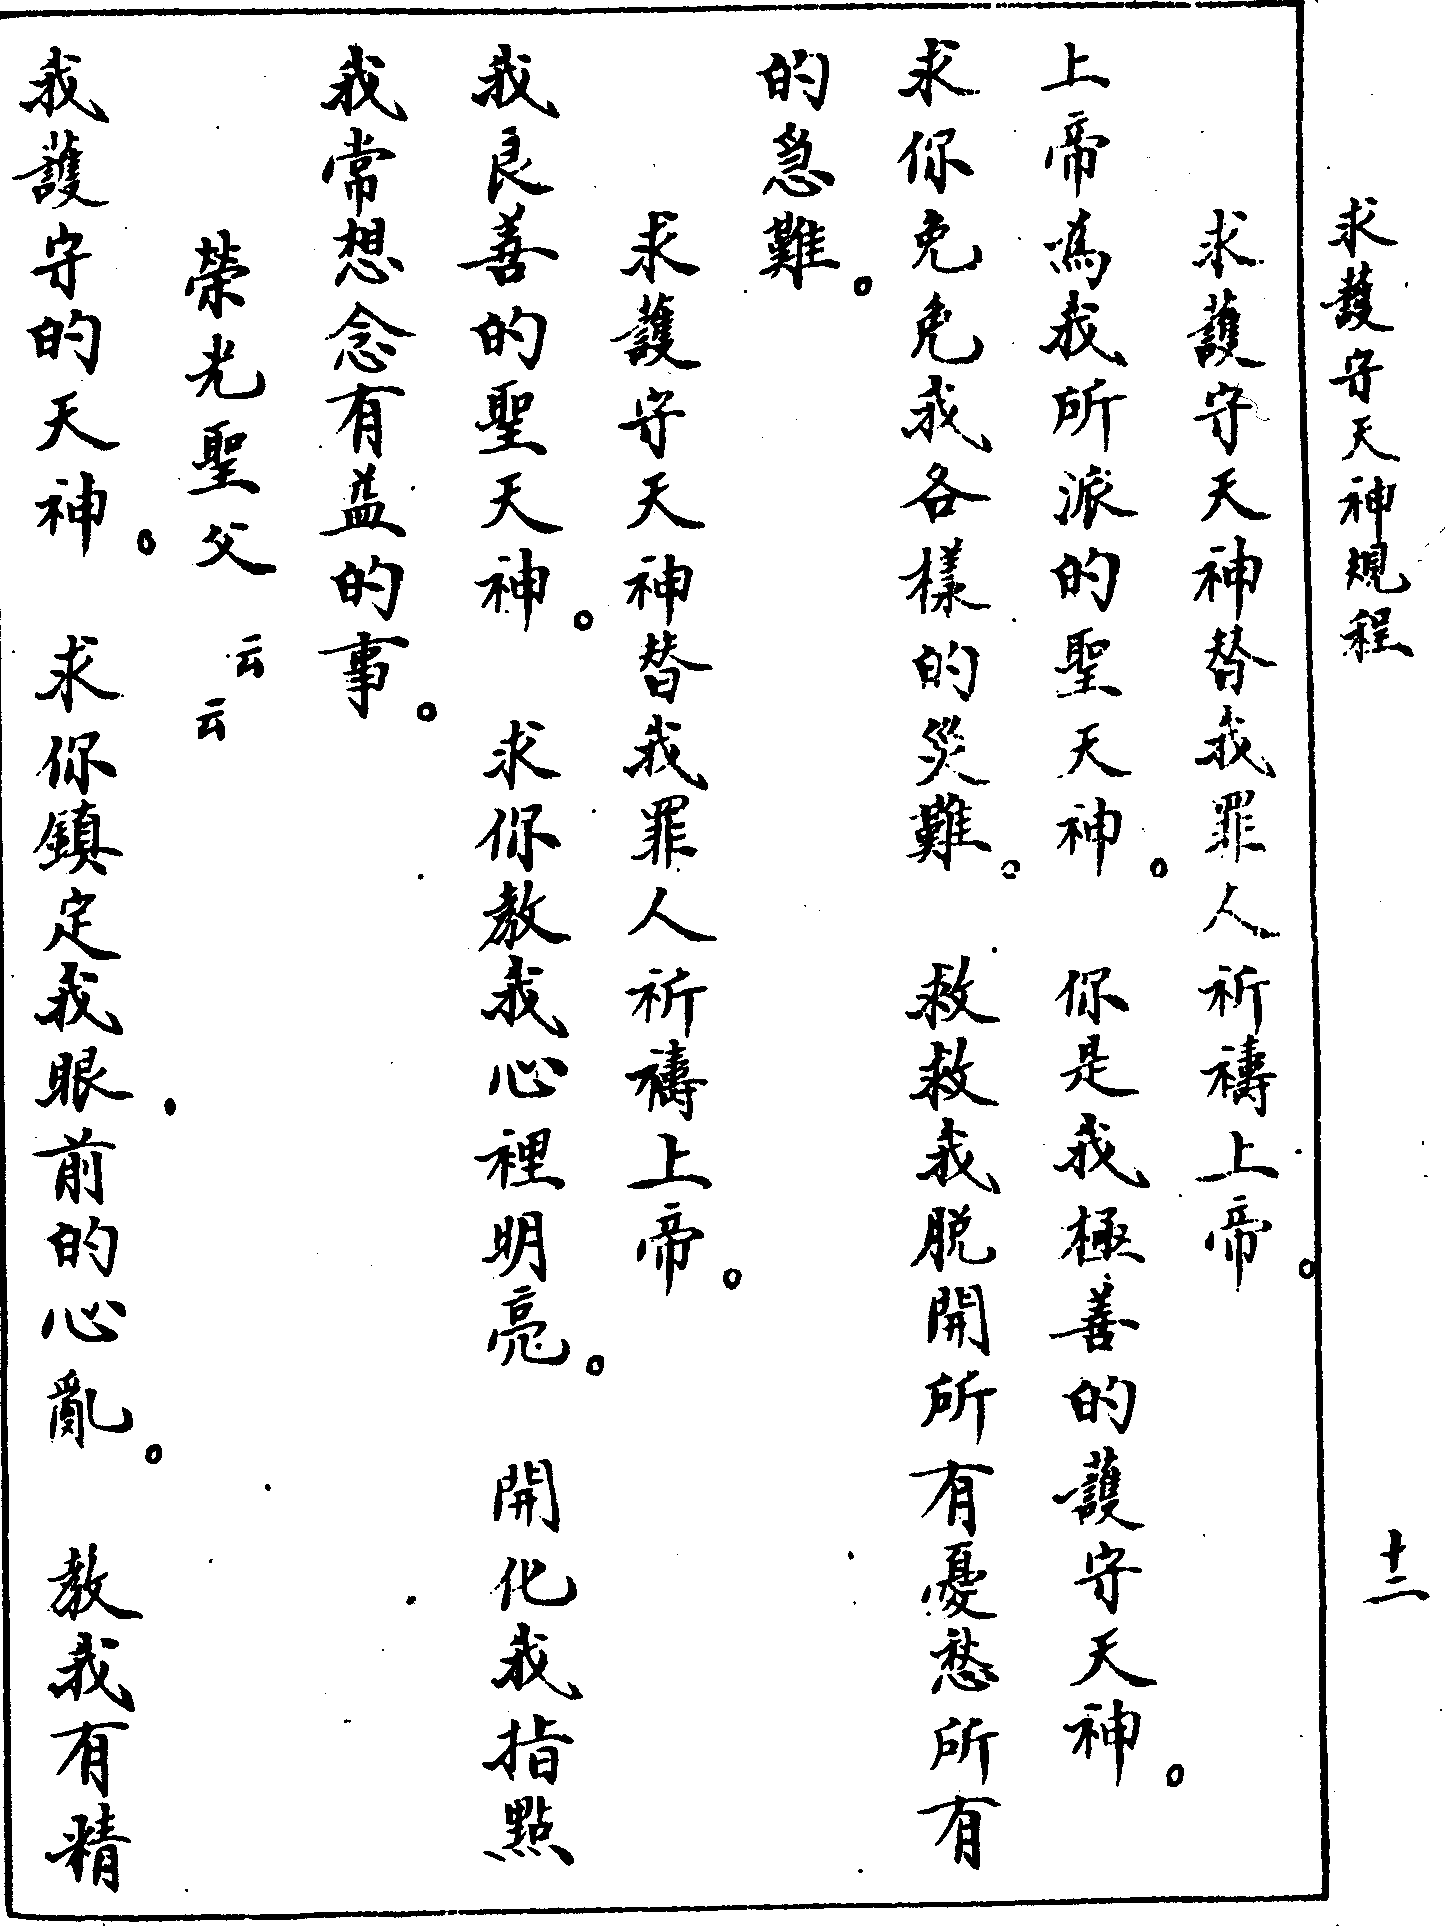 求護守天神規程 十二
求護守天神替我罪人祈禱上帝。
上帝爲我所派的聖天神。 你是我極善的護守天神。
求你免免我各樣的災難。 救救我脫開所有憂愁所有
的急難。
求護守天神替我罪人祈禱上帝。
我良善的聖天神。 求你教我心裡明亮。 開化我指點
我常想念有益的事。
榮光聖父 云云
我護守的天神。 求你鎮定我眼前的心亂。 教我有精